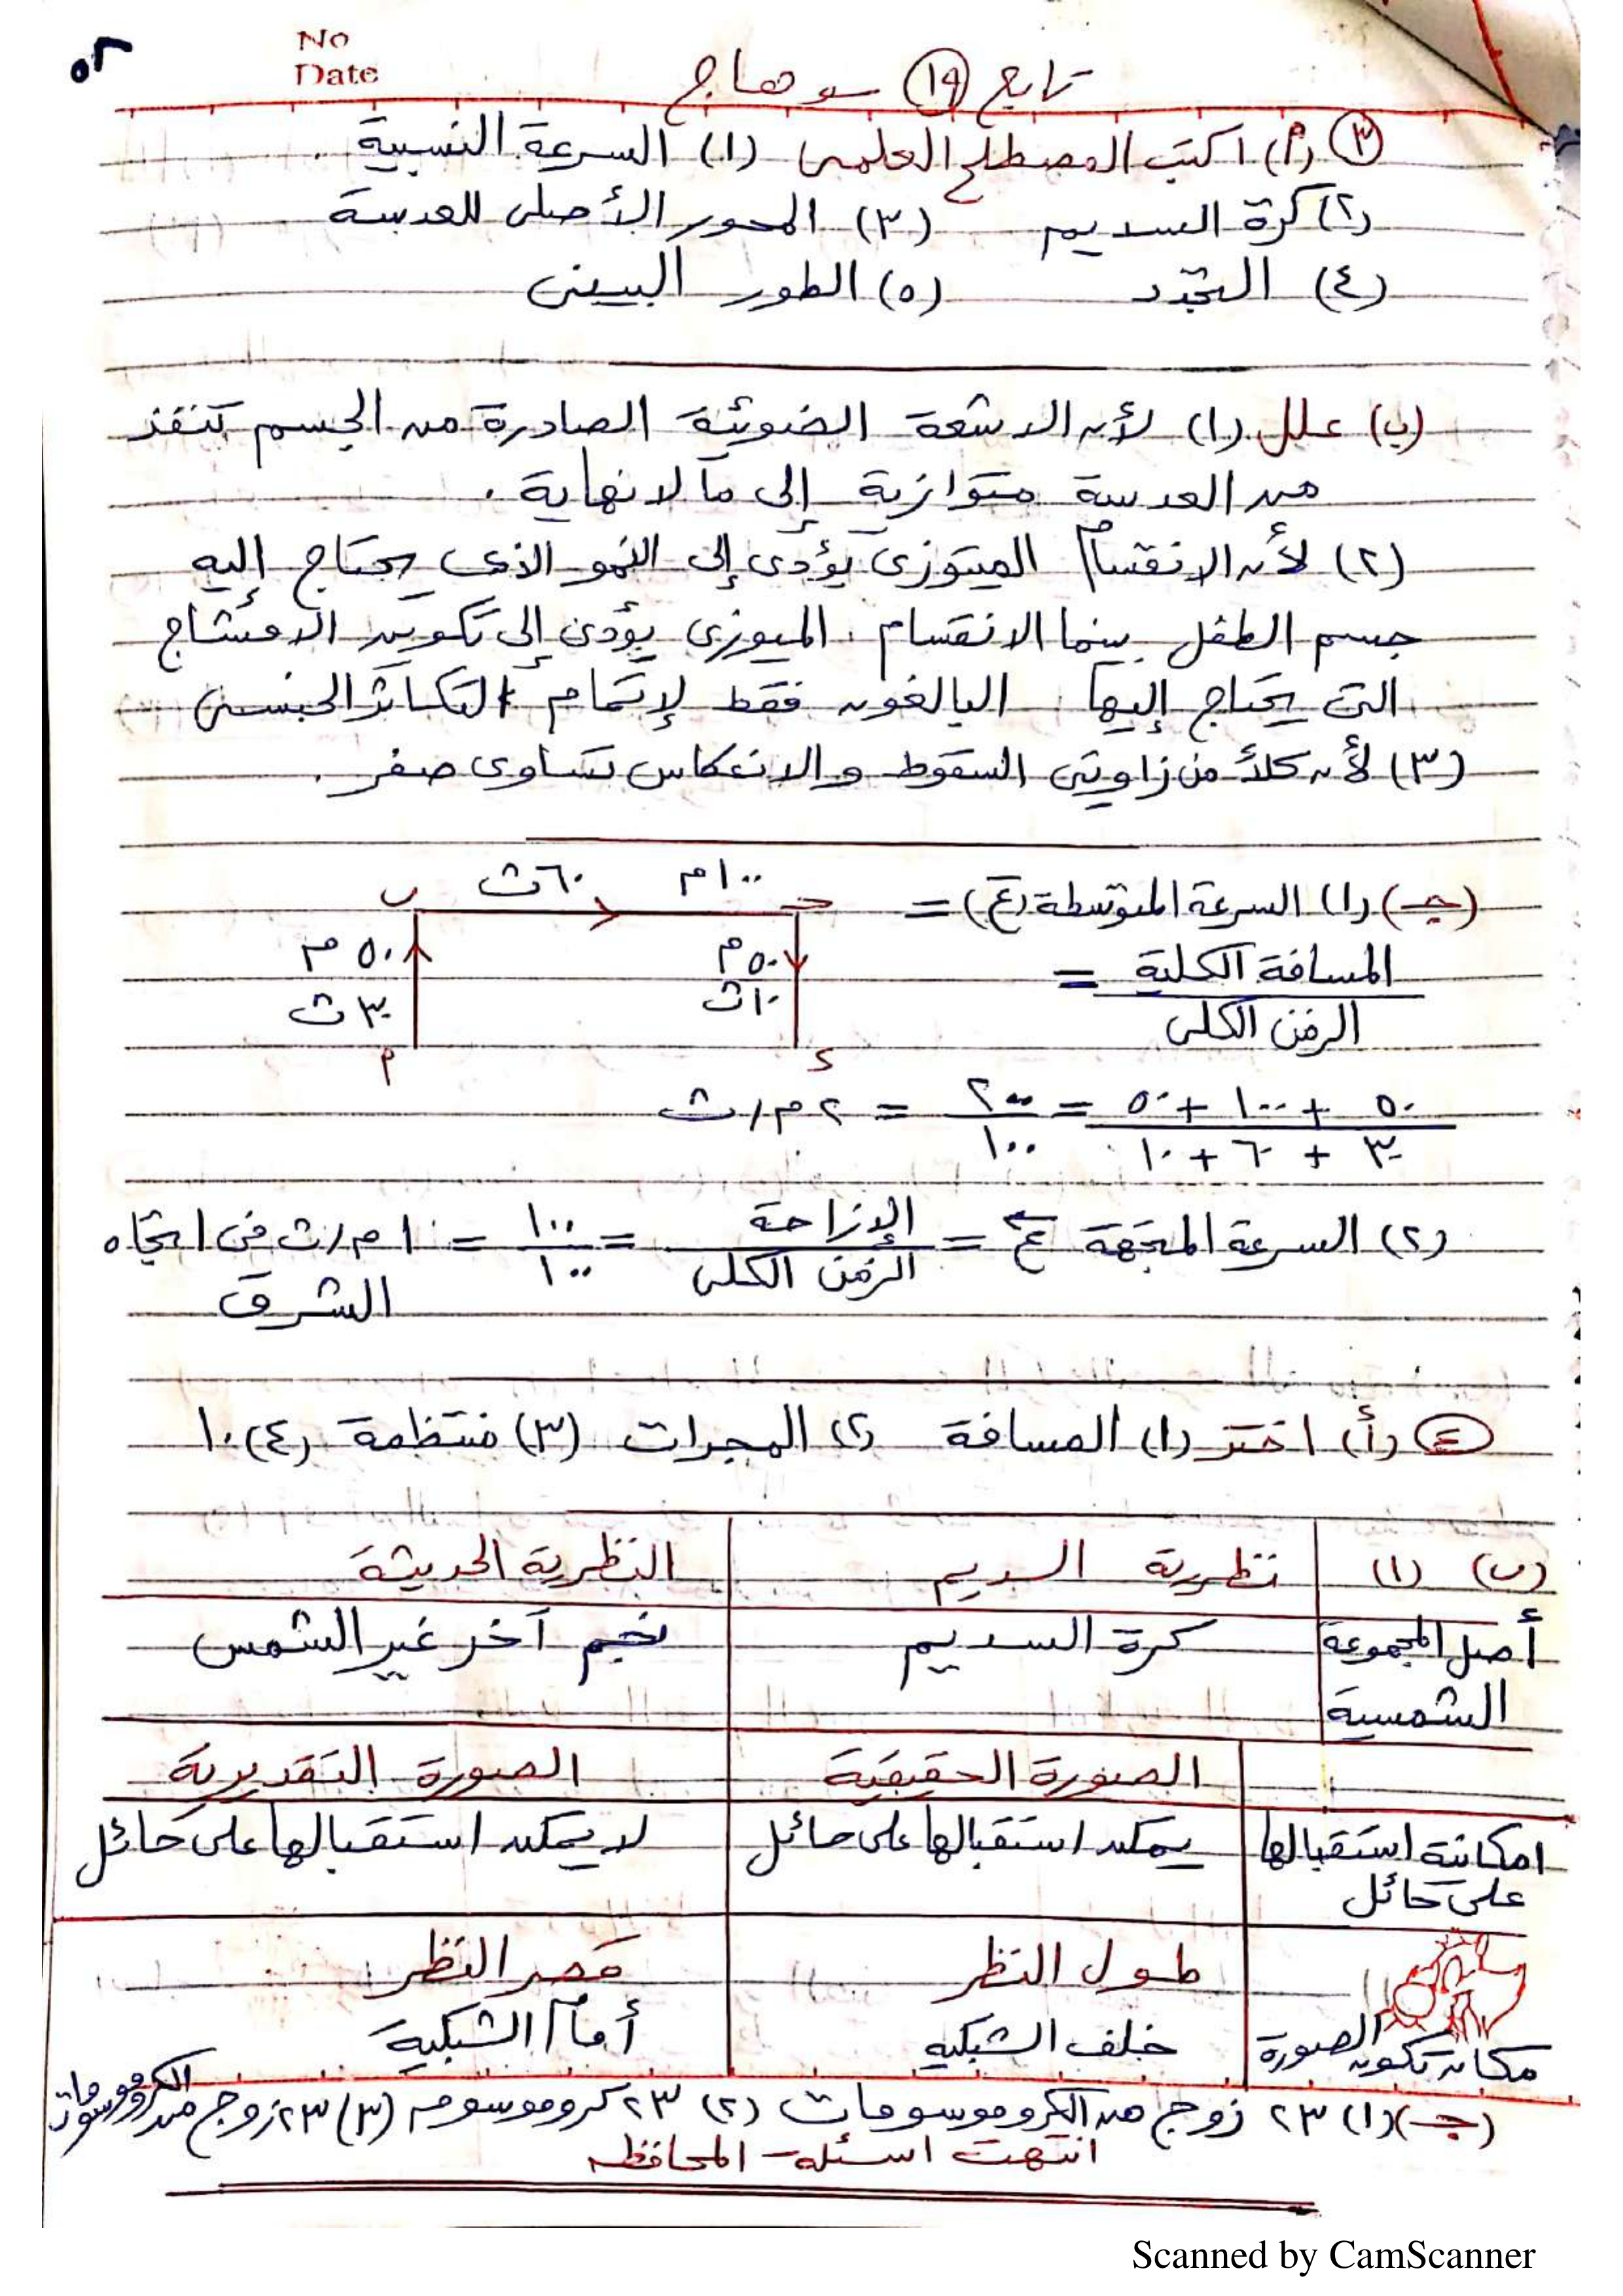 ٥٢
No
Date
تابع (١٩) سوهاج
(٣) (أ) اكتب المصطلح العلمى (١) السرعة النسبية .
(٢) كرة السديم (٣) المحور الأصلى للعدسة
(٤) التجدد (٥) الطور البينى
(ب) علل (١) لأن الاشعة الضوئية الصادرة من الجسم تنفذ
من العدسة متوازية إلى ما لا نهاية .
(٢) لأن الانقسام الميتوزى يؤدى إلى النمو الذى يحتاج إليه
جسم الطفل بينما الانقسام الميوزى يؤدى إلى تكوين الامشاج
التى يحتاج إليها البالغون فقط لإتمام التكاثر الجنسى
(٣) لأن كلاً من زاويتى السقوط والانعكاس تساوى صفر .
(جـ) (١) السرعة المتوسطة (ع) =
المسافة الكلية =
الزمن الكلى
ب ٦٠ ث ١٠٠ م جـ
٥٠ م ٥٠ م
٣٠ ث ١٠ ث
أ د
٥٠ + ١٠٠ + ٥٠ = ٢٠٠ = ٢ م/ث
٣٠ + ٦٠ + ١٠ ١٠٠
(٢) السرعة المتجهة ع = الإزاحة = ١٠٠ = ١ م/ث فى اتجاه
الزمن الكلى ١٠٠ الشرق
(٤) (أ) اختر (١) المسافة (٢) المجرات (٣) منتظمة (٤) ١٠
(ب) (١) نظرية السديم النظرية الحديثة
أصل المجموعة كرة السديم نجم آخر غير الشمس
الشمسية
الصورة الحقيقية الصورة التقديرية
امكانية استقبالها يمكن استقبالها على حائل لا يمكن استقبالها على حائل
على حائل
طول النظر قصر النظر
مكان تكون الصورة خلف الشبكيه أمام الشبكية
(جـ) (١) ٢٣ زوج من الكروموسومات (٢) ٢٣ كروموسوم (٣) ٢٣ زوج من الكروموسومات
انتهت اسئلة المحافظه
Scanned by CamScanner